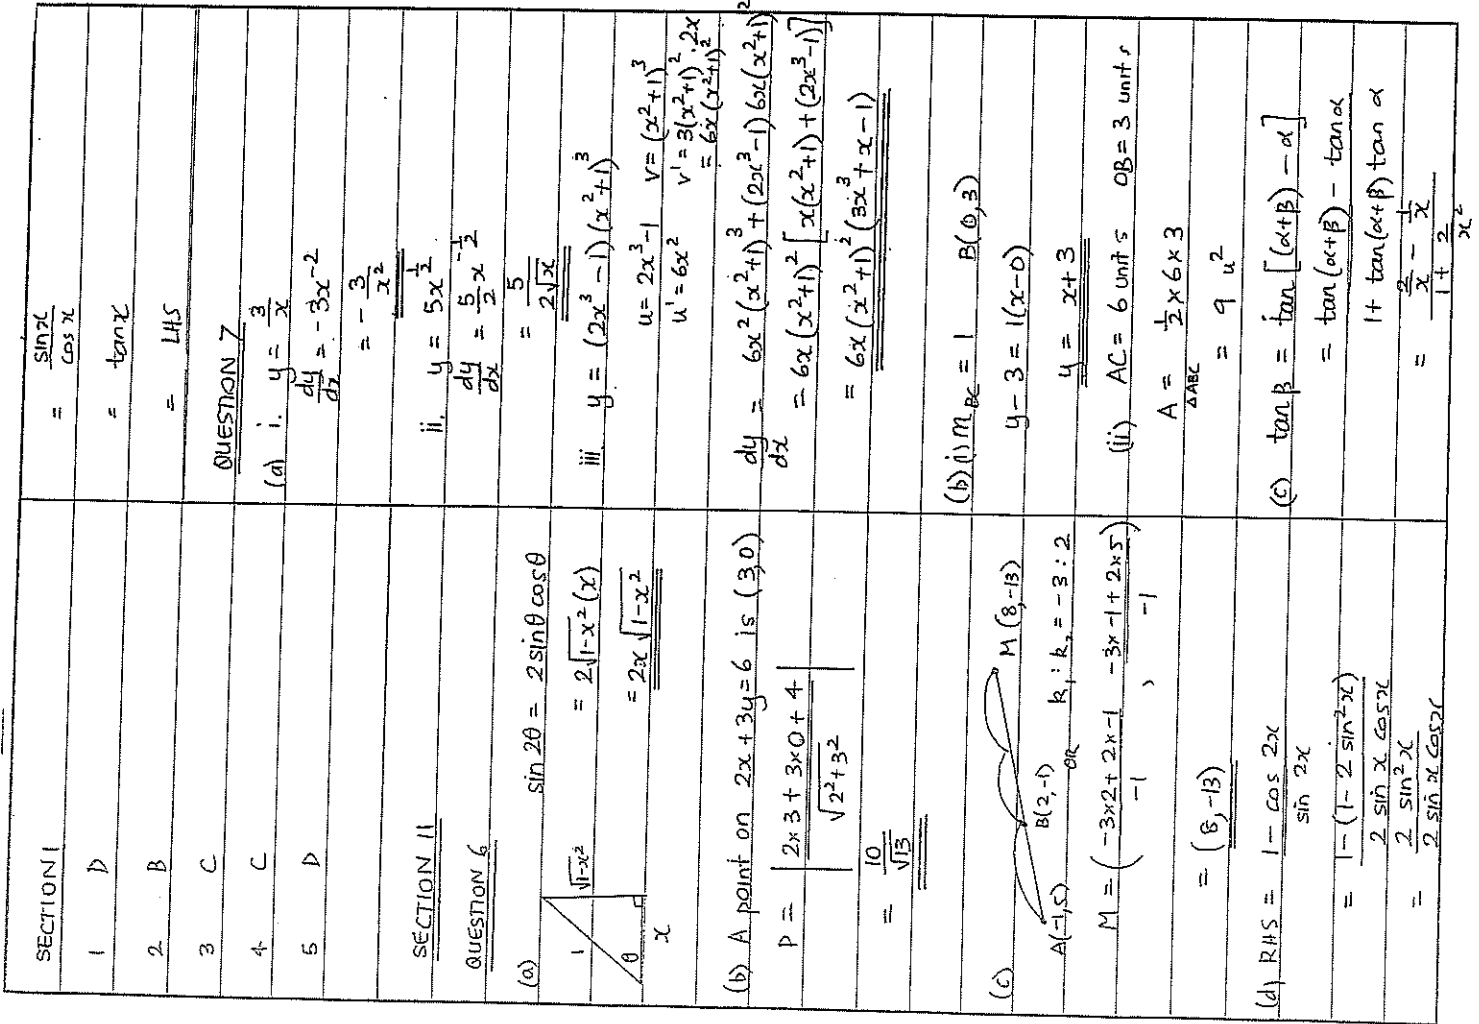 SECTION 1
1 D
2 B
3 C
4 C
5 D
SECTION 11
QUESTION 6
(a) sin 2θ = 2 sinθ cosθ
1 √1-x² θ x
= 2√1-x² (x)
= 2x √1-x²
(b) A point on 2x + 3y = 6 is (3,0)
P = | 2×3 + 3×0 + 4 / √2²+3² |
= 10/√13
(c) A(-1,5) B(2,-1) M(8,-13)
OR k₁ : k₂ = -3 : 2
M = ( -3×2 + 2×-1 / -1 , -3×-1 + 2×5 / -1 )
= (8, -13)
(d) RHS = 1 - cos 2x / sin 2x
= 1 - (1 - 2 sin²x) / 2 sin x cos x
= 2 sin²x / 2 sin x cos x
= sin x / cos x
= tan x
= LHS
QUESTION 7
(a) i. y = 3/x
dy/dx = -3x⁻²
= -3/x²
ii. y = 5x^½
dy/dx = 5/2 x^-½
= 5/2√x
iii. y = (2x³ - 1)(x² + 1)³
u = 2x³ - 1 v = (x² + 1)³
u' = 6x² v' = 3(x²+1)² . 2x
= 6x(x²+1)²
dy/dx = 6x²(x²+1)³ + (2x³-1) 6x(x²+1)²
= 6x(x²+1)² [x(x²+1) + (2x³-1)]
= 6x(x²+1)² (3x³ + x - 1)
(b) (i) m BC = 1 B(0,3)
y - 3 = 1(x - 0)
y = x + 3
(ii) AC = 6 units OB = 3 units
A ΔABC = ½ × 6 × 3
= 9 u²
(c) tan β = tan [(α+β) - α]
= tan(α+β) - tan α / 1 + tan(α+β) tan α
= 2/x - 1/x / 1 + 2/x²